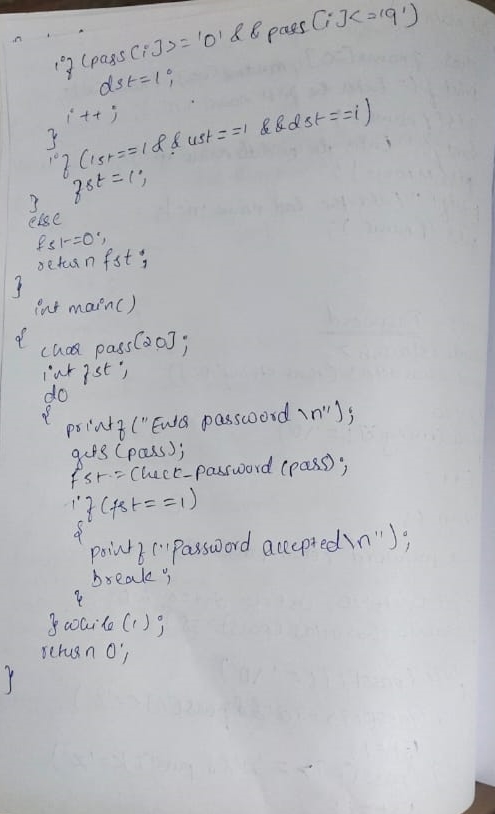 if (pass[i]>='0' && pass[i]<='9')
dst=1;
i++;
}
if (lst==1 && ust==1 && dst==i)
fst=1;
}
else
fst=0;
return fst;
}
int main()
{
char pass[20];
int fst;
do
{
printf("Enter password \n");
gets(pass);
fst=Check_password(pass);
if(fst==1)
{
printf("Password accepted\n");
break;
}
}while(1);
return 0;
}